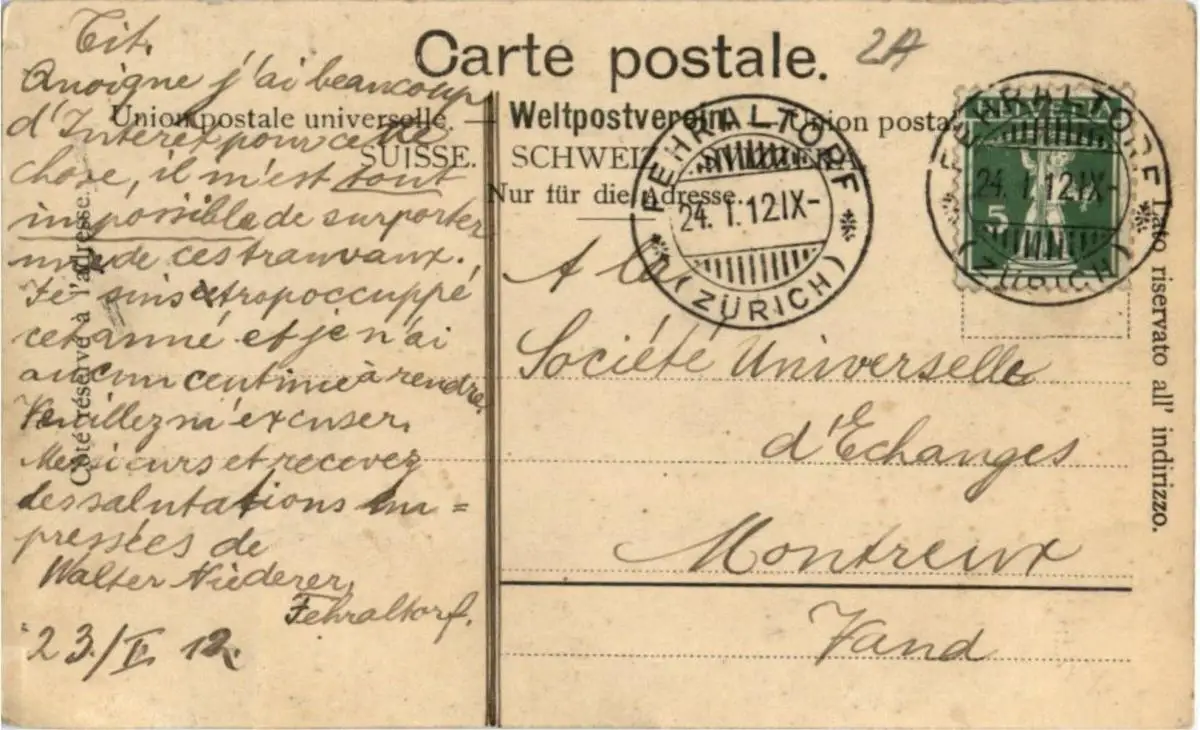 Carte postale.
2A
Union postale universelle. — Weltpostverein. — Union posta
SUISSE. SCHWEIZ
Nur für die Adresse.
Côté réservé à l'adresse.
Lato riservato all' indirizzo.
FEHRALTORF
24. I. 12. IX-
(ZÜRICH)
HELVETIA
5
FEHRALTORF
24. I. 12. IX-
(ZÜRICH)
Tit.
Quoigne j'ai beaucoup
d'Interet pour cette
chose, il m'est tout
impossible de surporter
de ces travaux.
Je suis trop occuppé
cet anné et je n'ai
aucun centime à rendre.
Veuillez m'excuser.
Messieurs et recevez
des salutations em=
pressées de
Walter Niederer,
Fehraltorf.
23./I. 12.
A la
Société Universelle
d'Echanges
Montreux
Vaud